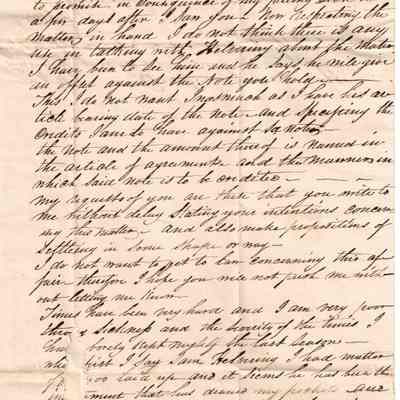 to permit in Consequence of my
a few days after I saw you - Now respecting the
matter in hand I do not think there is any
use in talking with about the Matter
I have been to see him and he says he will give
an offset against the Note you hold
This I do not want Inasmuch as I have his ar
ticle bearing date of the Note - and Specifying the
Credits I am to have against sd note
the note and the amount thereof is Named in
the article of agreements and the Manner in
which said Note is to be credited -
my requests of you are these that you write to
me without delay Stating your intentions concern
ing this matter - and also make propositions of
Settleing in some shape or way -
I do not want to get to law concerning this af
fair therefore I hope you will not push me with
out letting me know -
Times have been very hard and I am very poor
& Sickness and the Severity of the times I
have barely kept myself the last season -
first I say I am I had matter
laid up - and it seems he has been the
that has drained my pockets and